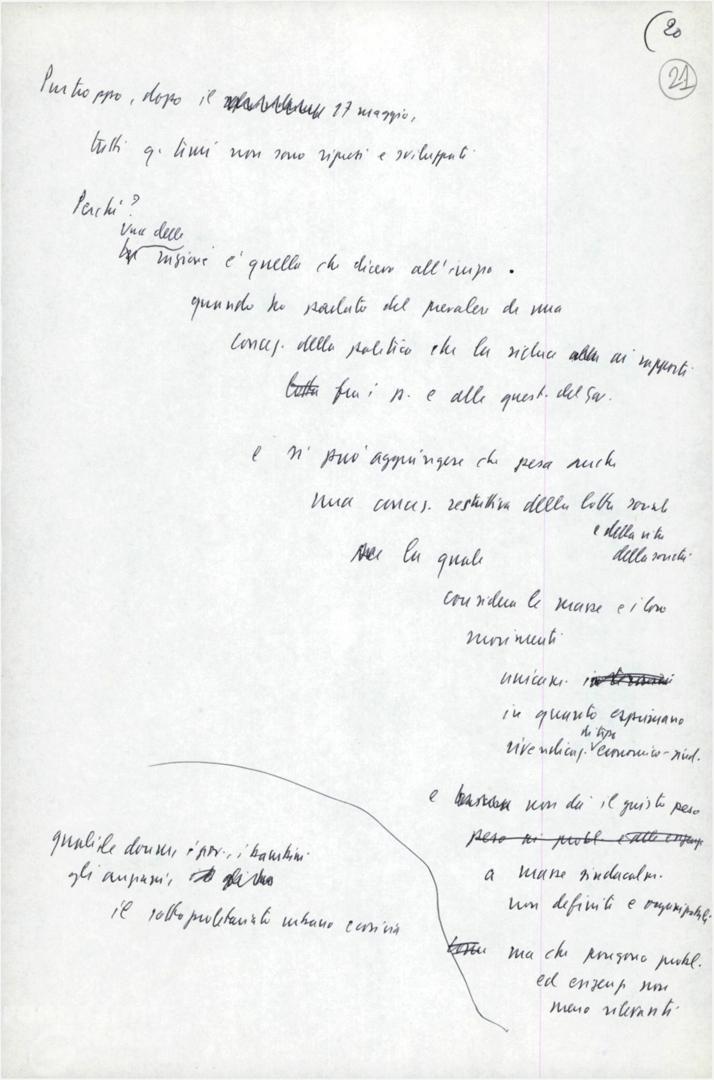 (20
21
Purtroppo, dopo il 17 maggio,
tutti q. temi non sono ripresi e sviluppati
Perché?
una delle
ragioni è quella che dicevo all'inizio.
quando ho parlato del prevalere di una
concez. della politica che la riduce ai rapporti
fra i p. e alle quest. del Gov.
e si può aggiungere che pesa anche
una concez. restrittiva della lotta sociale
e della vita
della società
la quale
considera le masse e i loro
movimenti
unicam.
in quanto esprimano
di tipo
rivendicaz. economico-sind.
e non dà il giusto peso
peso ai probl. e alle esigenze
a masse sindacalm.
non definiti e organizzabili
ma che pongono probl.
ed esigenze non
meno rilevanti
quali le donne, i giov., i bambini
gli anziani,
il sottoproletariato urbano